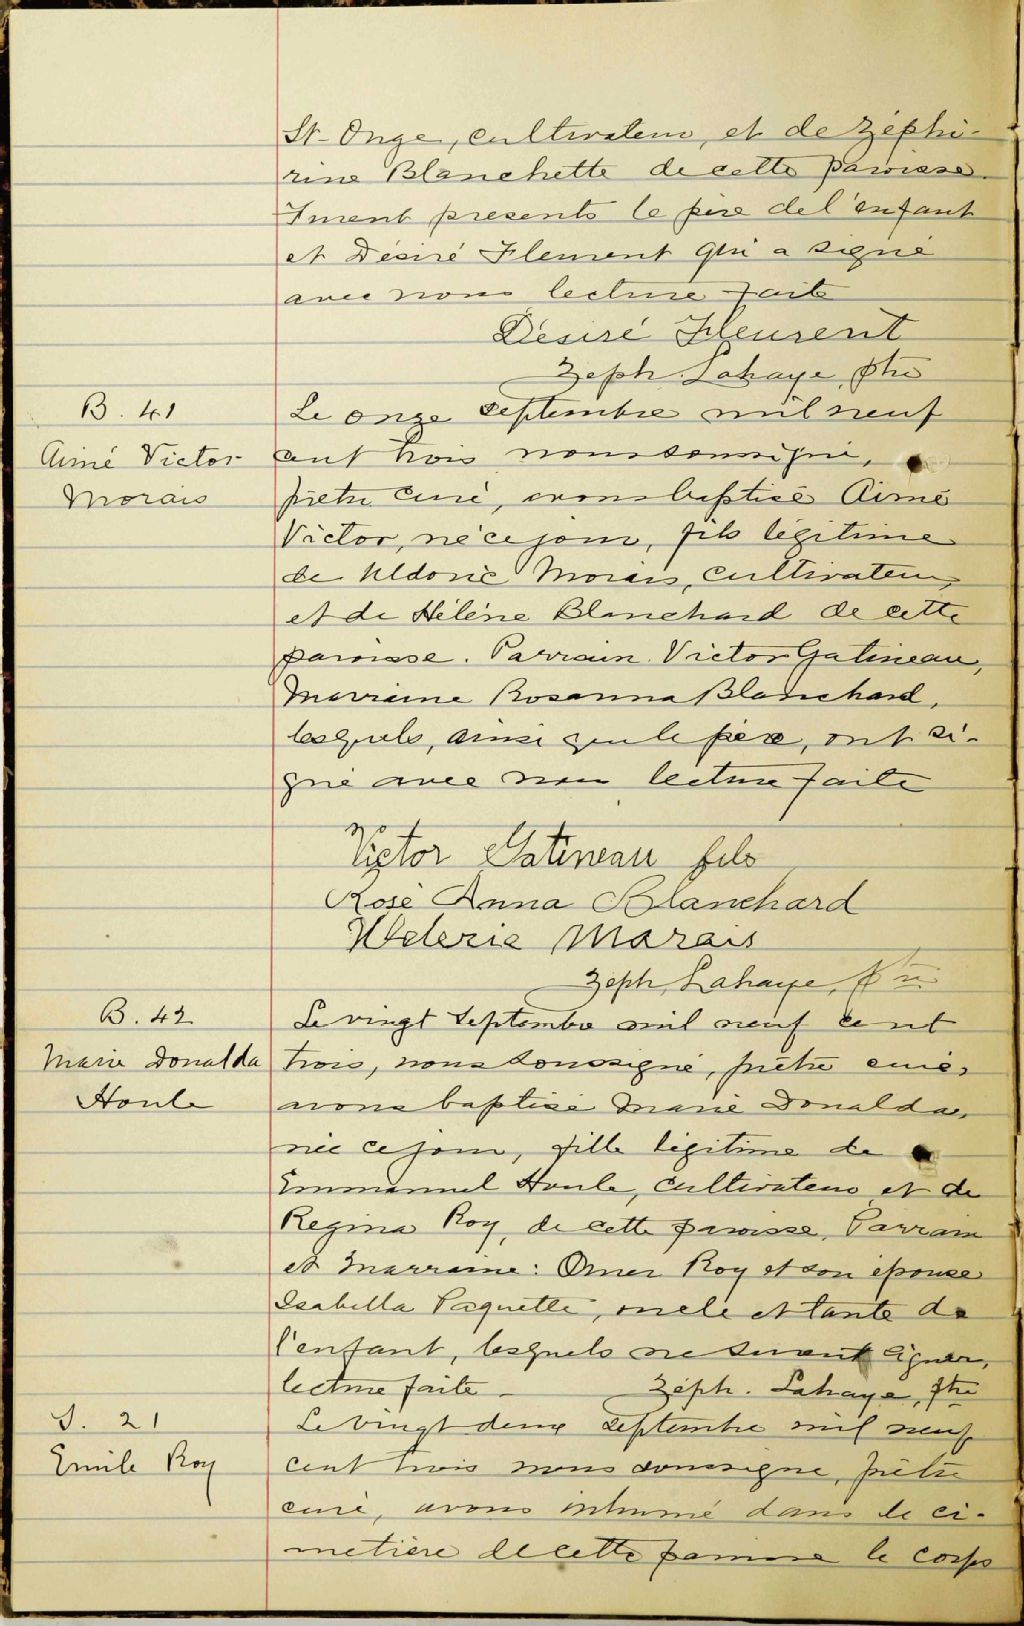 St-Onge, cultivateur, et de Zéphi-
rine Blanchette de cette paroisse.
Furent présents le père de l'enfant
et Désiré Fleurent qui a signé
avec nous lecture faite
Désiré Fleurent
Zéph. Lahaye, ptre
B. 41
Aimé Victor
Morais
Le onze septembre mil neuf
cent trois nous soussigné,
prêtre curé, avons baptisé Aimé
Victor, né ce jour, fils légitime
de Uldoric Morais, cultivateur,
et de Hélène Blanchard de cette
paroisse. Parrain Victor Gatineau,
Marraine Rosanna Blanchard,
lesquels, ainsi que le père, ont si-
gné avec nous lecture faite
Victor Gatineau fils
Rose Anna Blanchard
Morais
Zéph. Lahaye, ptre
B. 42
Marie Donalda
Houle
Le vingt septembre mil neuf cent
trois, nous soussigné, prêtre curé,
avons baptisé Marie Donalda,
née ce jour, fille légitime de
Emmanuel Houle, cultivateur et de
Regina Roy, de cette paroisse, Parrain
et Marraine: Omer Roy et son épouse
Isabella Paquette, oncle et tante de
l'enfant, lesquels ne savent signer,
lecture faite - Zéph. Lahaye, ptre
S. 21
Emile Roy
Le vingt deux septembre mil neuf
cent trois nous soussigné, prêtre
curé, avons inhumé dans le ci-
metière de cette paroisse le corps